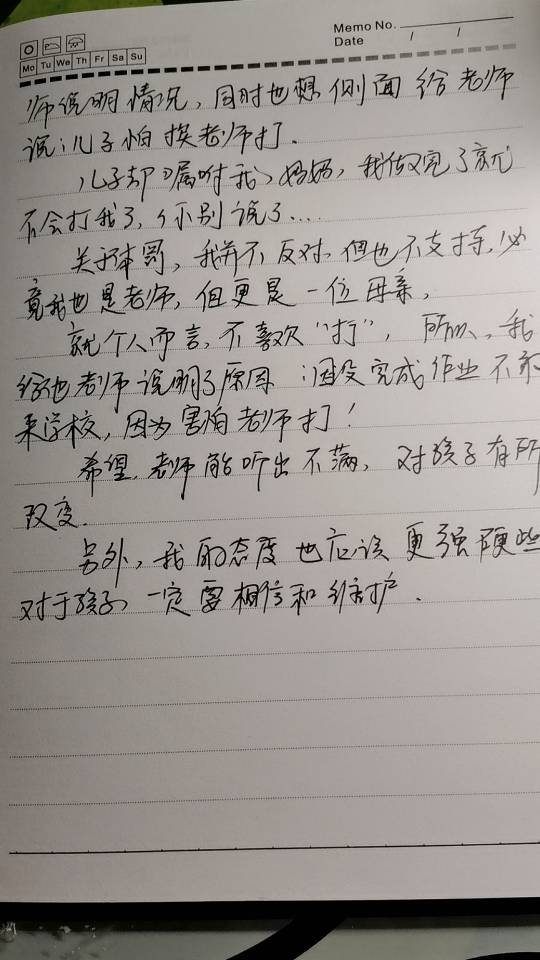 Memo No.
Date / /
Mo Tu We Th Fr Sa Su
师说明情况，同时也想侧面给老师
说：儿子怕挨老师打.
儿子却嘱咐我：妈妈，我做完了就
不会打我了，你别说了...
关于体罚，我并不反对.但也不支持，必
竟我也是老师，但更是一位母亲，
就个人而言，不喜欢“打”，所以，我
给他老师说明了原因：因没完成作业不敢
来学校，因为害怕老师打！
希望，老师能听出不满，对孩子有所
改变.
另外，我的态度也应该更强硬些
对于孩子，一定要相信和维护.